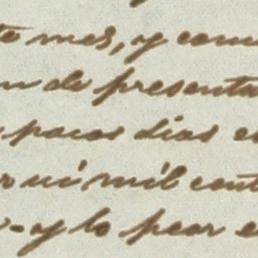 te mes, y com
n de presenta
pocos dias e
ni mil cent
y lo peor e